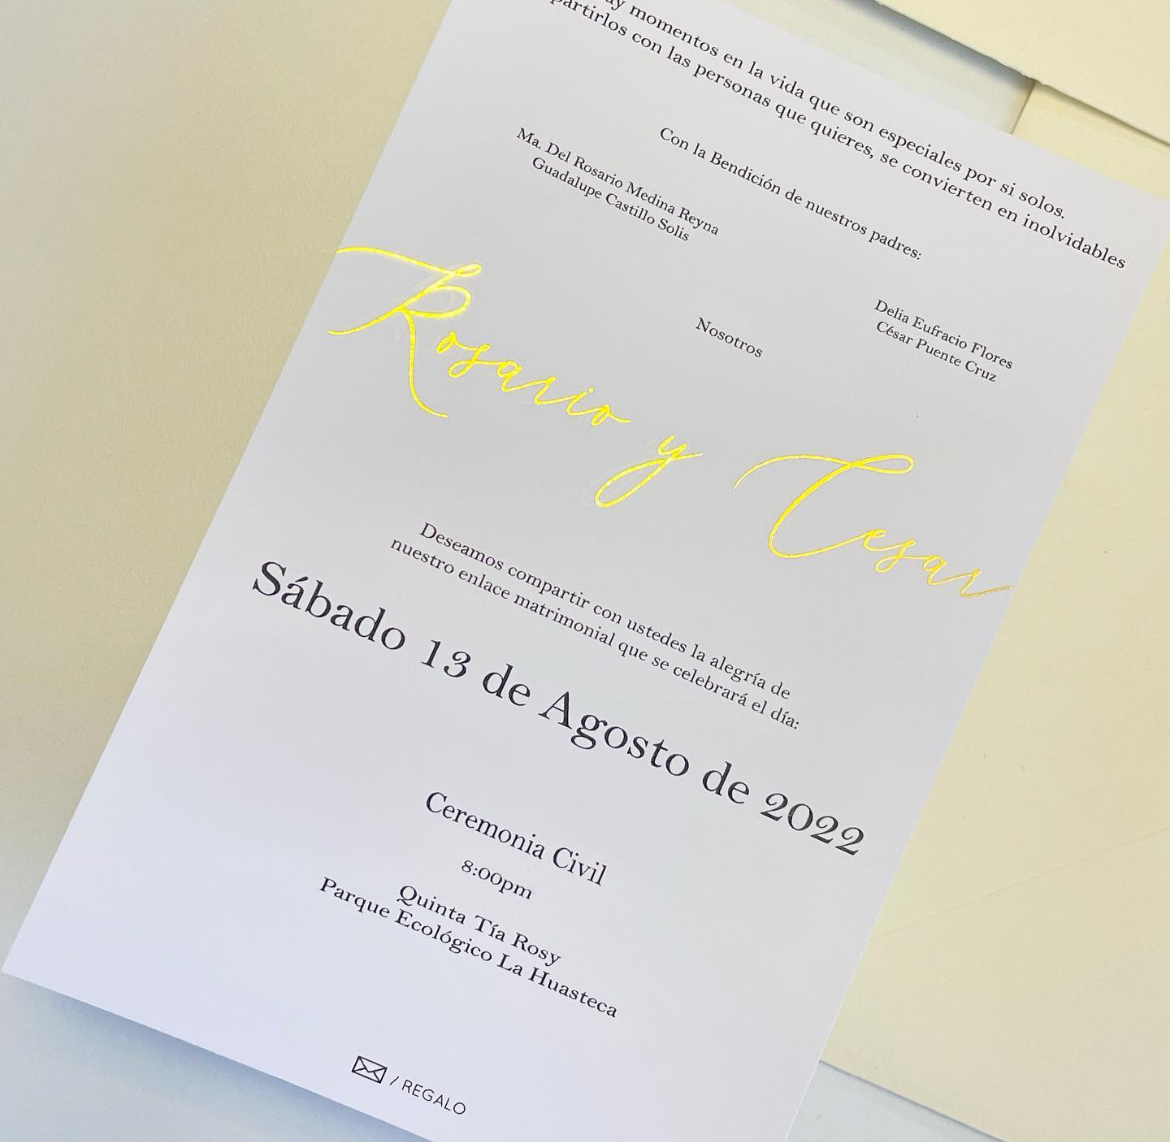 momentos en la vida que son especiales por si solos.
con las personas que quieres, se convierten en inolvidables
Con la Bendición de nuestros padres:
Ma. Del Rosario Medina Reyna
Guadalupe Castillo Solis
Delia Eufracio Flores
César Puente Cruz
Nosotros
Rosario y Cesar
Deseamos compartir con ustedes la alegría de
nuestro enlace matrimonial que se celebrará el día:
Sábado 13 de Agosto de 2022
Ceremonia Civil
8:00pm
Quinta Tía Rosy
Parque Ecológico La Huasteca
/ REGALO